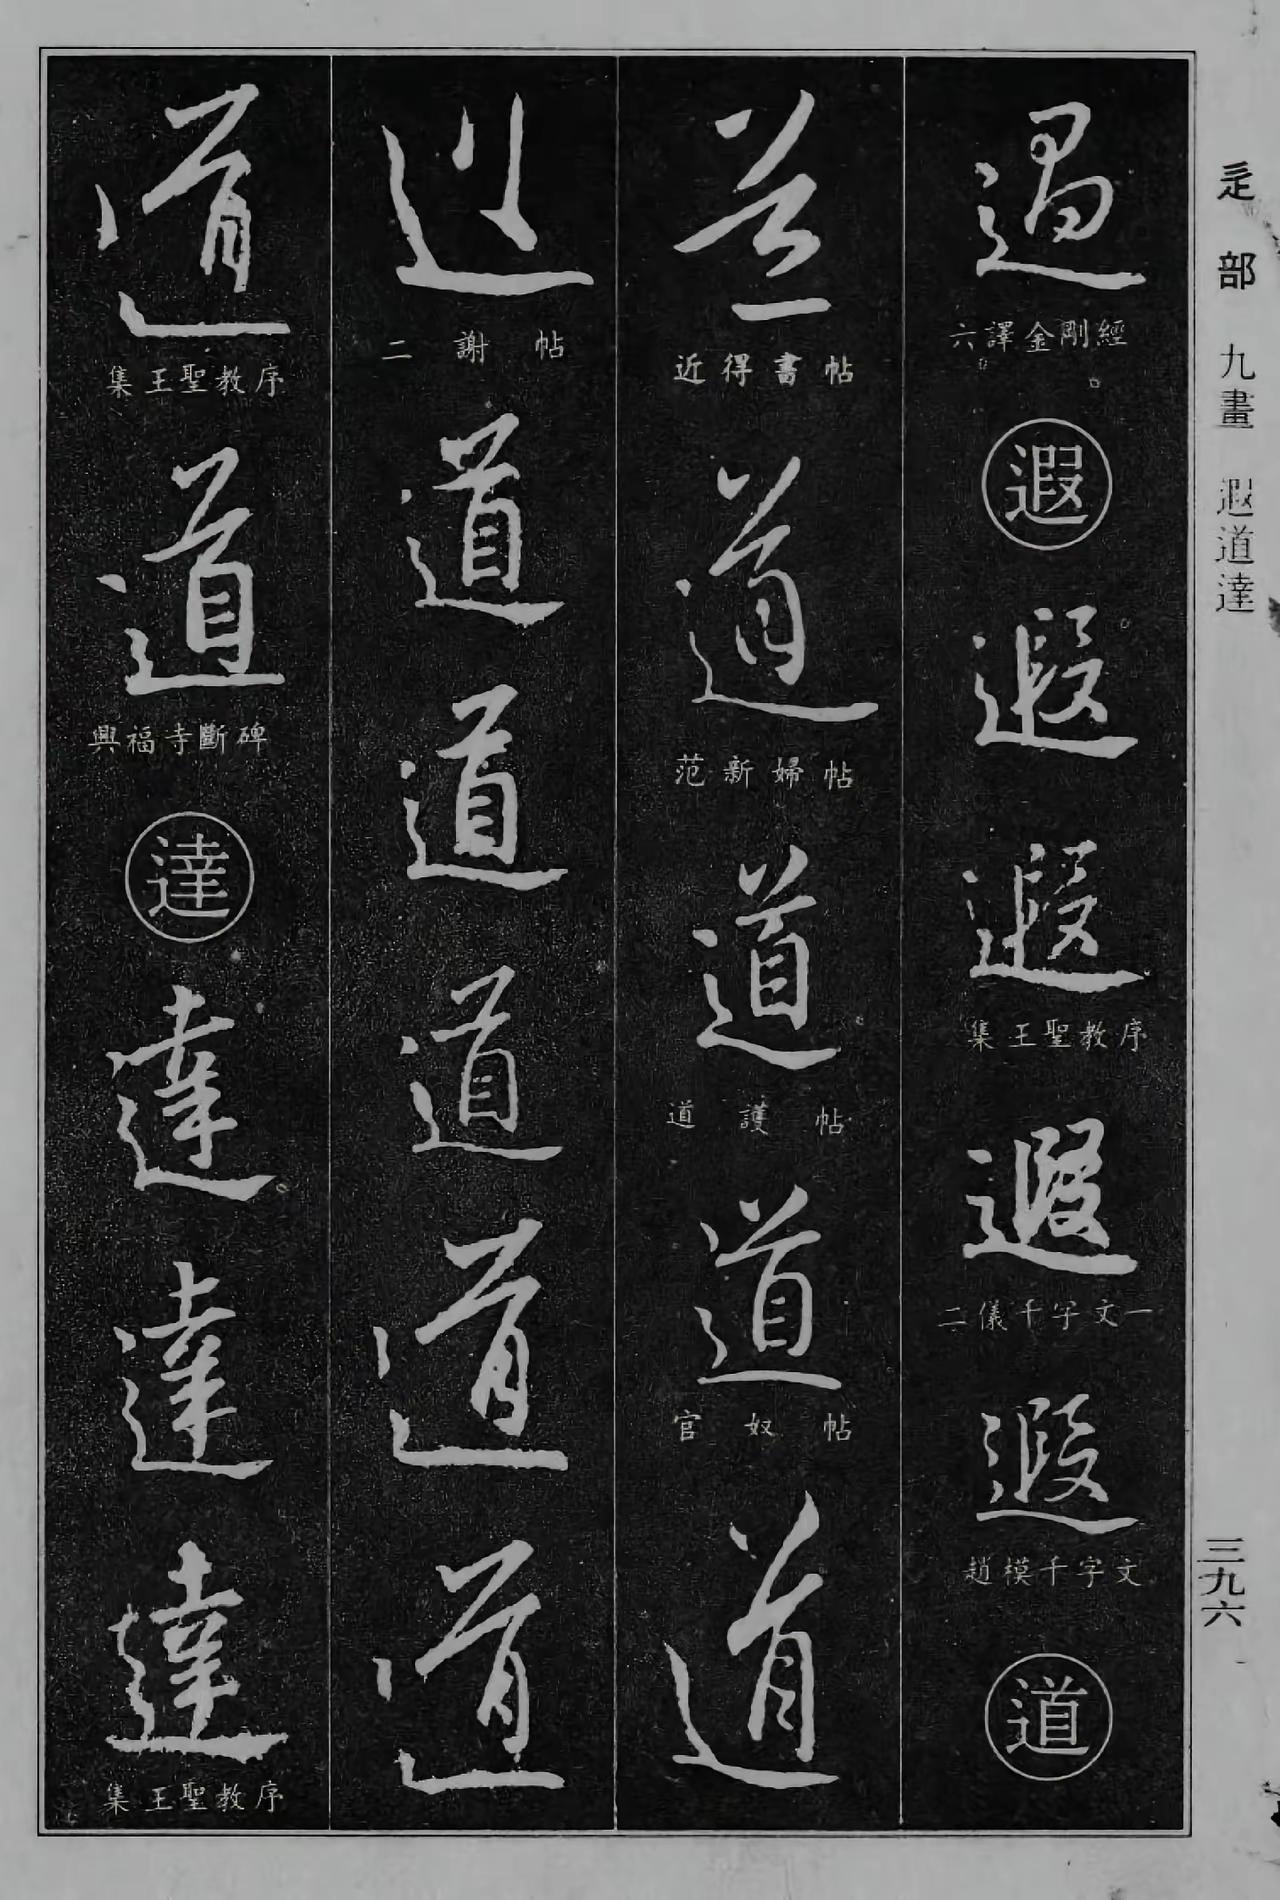 辵部 九畫 遐道達
三九六
過
六譯金剛經
遐
遐
遐
集王聖教序
遐
二儀千字文一
遐
趙模千字文
道
道
近得書帖
道
范新婦帖
道
道護帖
道
官奴帖
道
二謝帖
道
道
道
道
道
道
集王聖教序
道
興福寺斷碑
達
達
達
達
集王聖教序